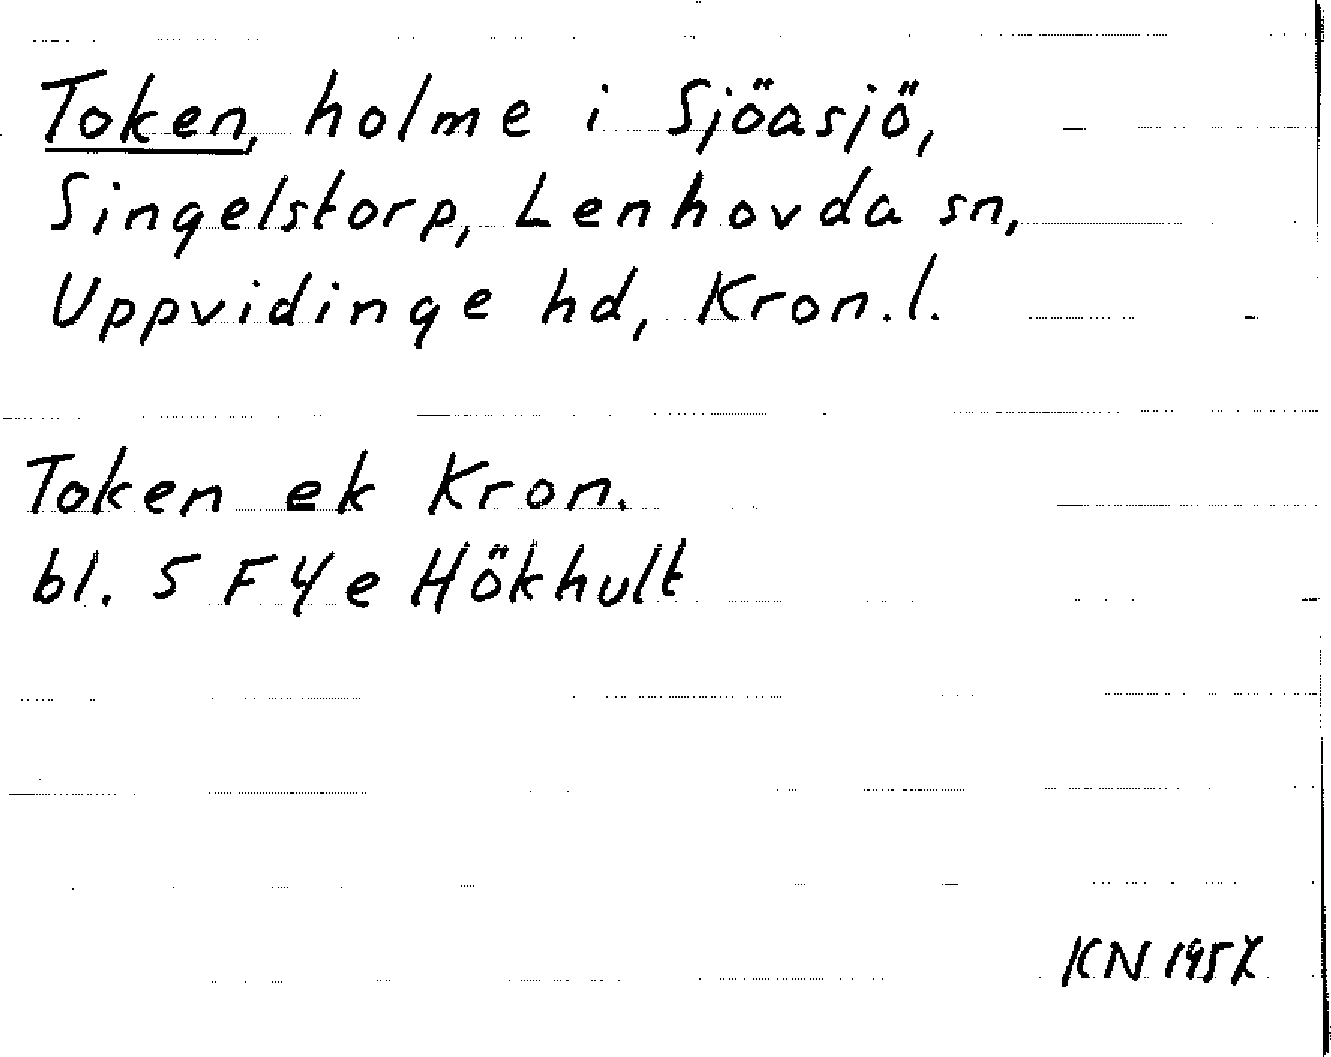 Token, holme i Sjöasjö,
Singelstorp, Lenhovda sn,
Uppvidinge hd, Kron.l.
Token ek Kron.
bl. 5 F 4 e Hökhult
KN 1957